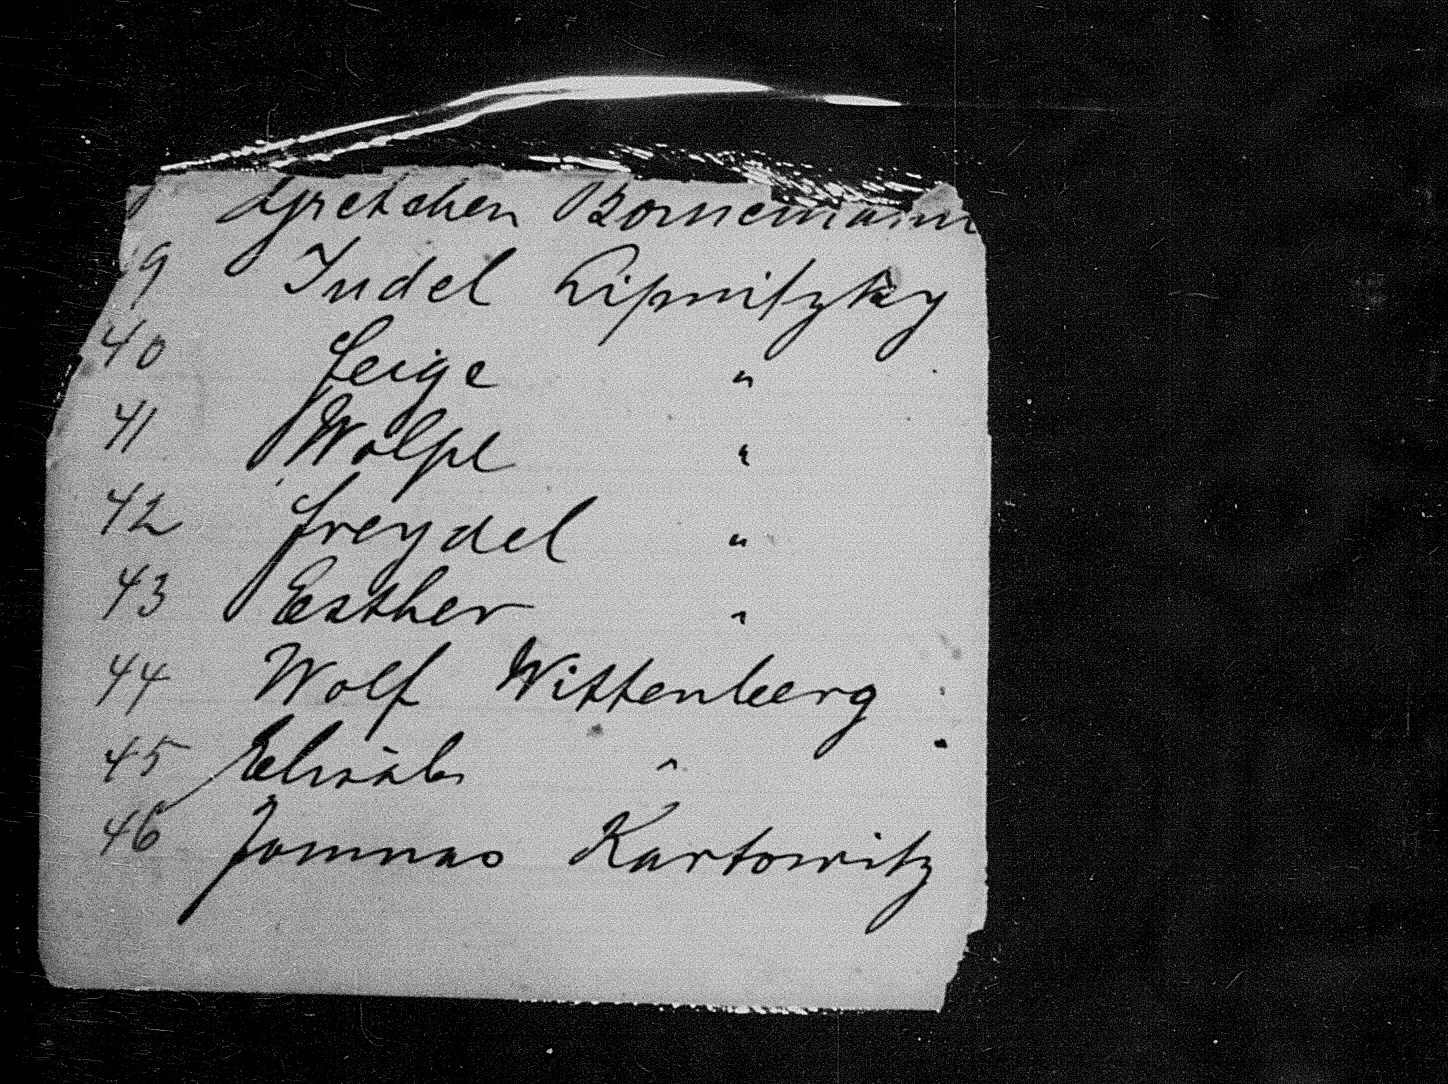 Gretchen Bornemann
9 Judel Lipnitzky
40 Feige "
41 Wolpe "
42 Freydel "
43 Esther "
44 Wolf Wittenberg
45 "
46 Kartowitz